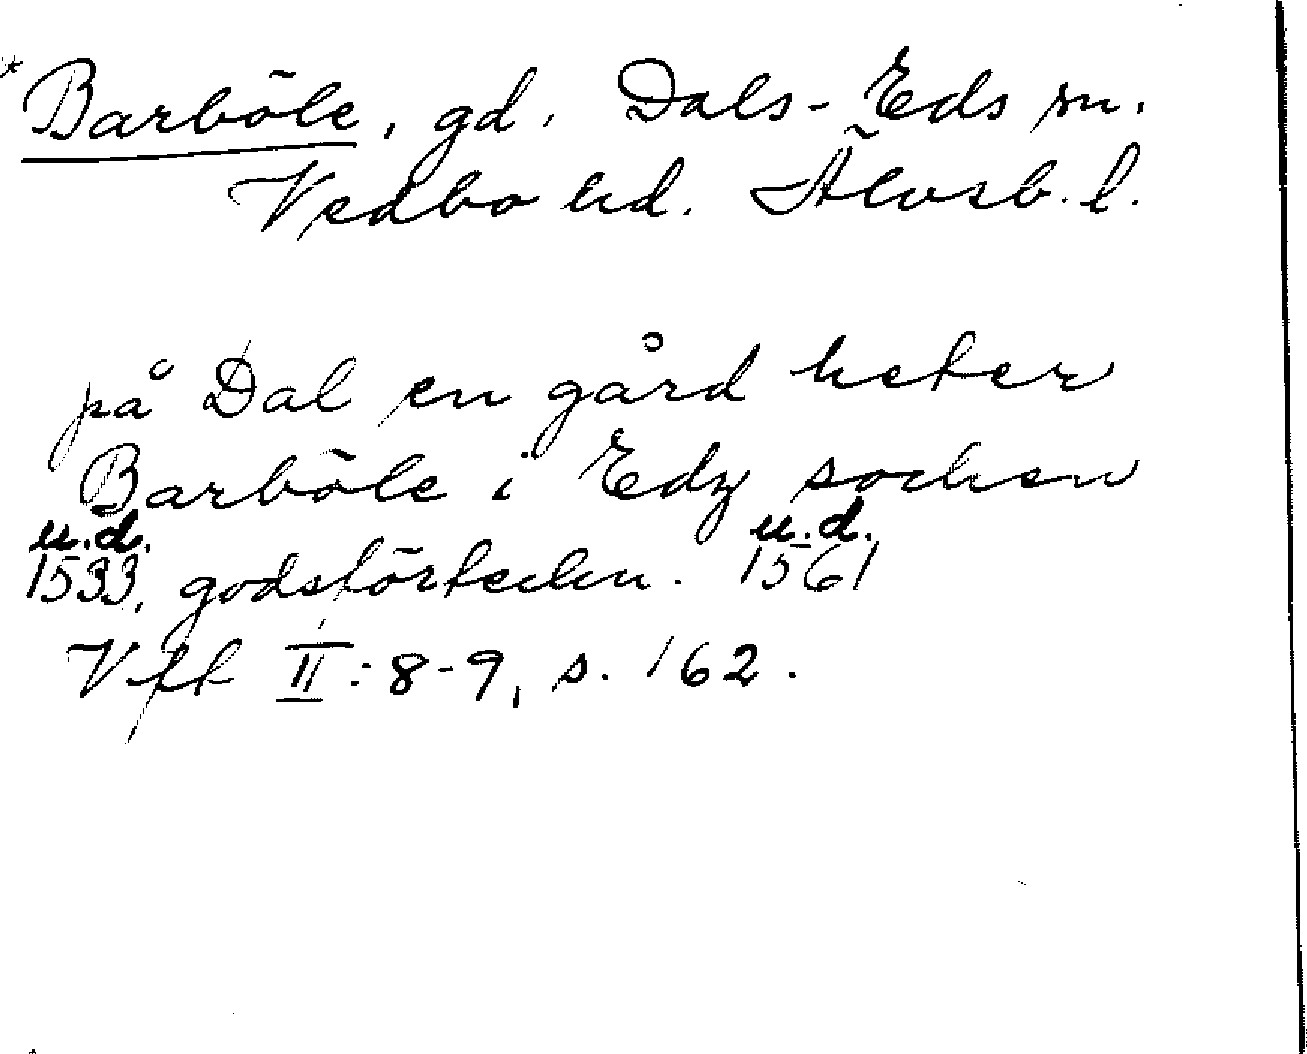 *Barböle, gd, Dals-Eds sn.
Vedbo hd. Älvsb. l.
på Dal en gård heter
Barböle i Edz sochen
u.d. u.d.
1533, godsförteckn. 1561
Vff II:8-9, s. 162.